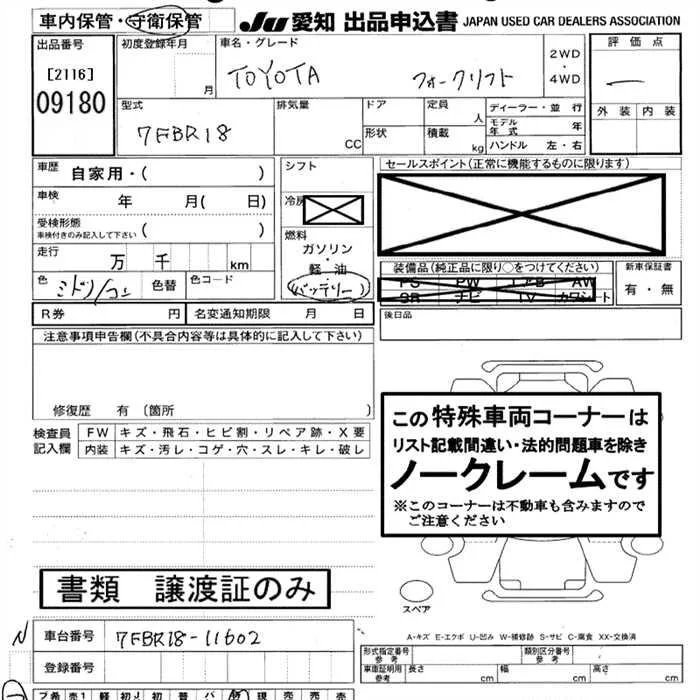 車内保管・守衛保管
JU 愛知 出品申込書 JAPAN USED CAR DEALERS ASSOCIATION
出品番号
[2116]
09180
初度登録年月
月
車名・グレード
TOYOTA フォークリフト
2WD
・
4WD
評価点
外装 内装
型式
7FBR18
排気量
CC
ドア
形状
定員
人
積載
kg
ディーラー・並行
モデル年式 年
ハンドル 左・右
車歴
自家用・( )
車検
年 月( 日)
受検形態
車検付きのみ記入して下さい ( )
走行
万 千 km
色
ミドリ/コン
色替
色コード
シフト
冷房
燃料
ガソリン
・
軽油
・
バッテリー
セールスポイント(正常に機能するものに限ります)
装備品(純正品に限り○をつけてください)
PS PW エアB AW
SR ナビ TV カワシート
新車保証書
有・無
後日品
R券 円
名変通知期限 月 日
注意事項申告欄(不具合内容等は具体的に記入して下さい)
修復歴 有 〔箇所
検査員
記入欄
FW キズ・飛石・ヒビ割・リペア跡・X要
内装 キズ・汚レ・コゲ・穴・スレ・キレ・破レ
この特殊車両コーナーは
リスト記載間違い・法的問題車を除き
ノークレームです
※このコーナーは不動車も含みますので
ご注意ください
書類 譲渡証のみ
スペア
A-キズ E-エクボ U-凹み W-補修跡 S-サビ C-腐食 XX-交換済
N
車台番号 7FBR18-11602
登録番号
形式指定番号
参考
類別区分番号
参考
車庫証明用
参考
長さ 幅 高さ
cm cm cm